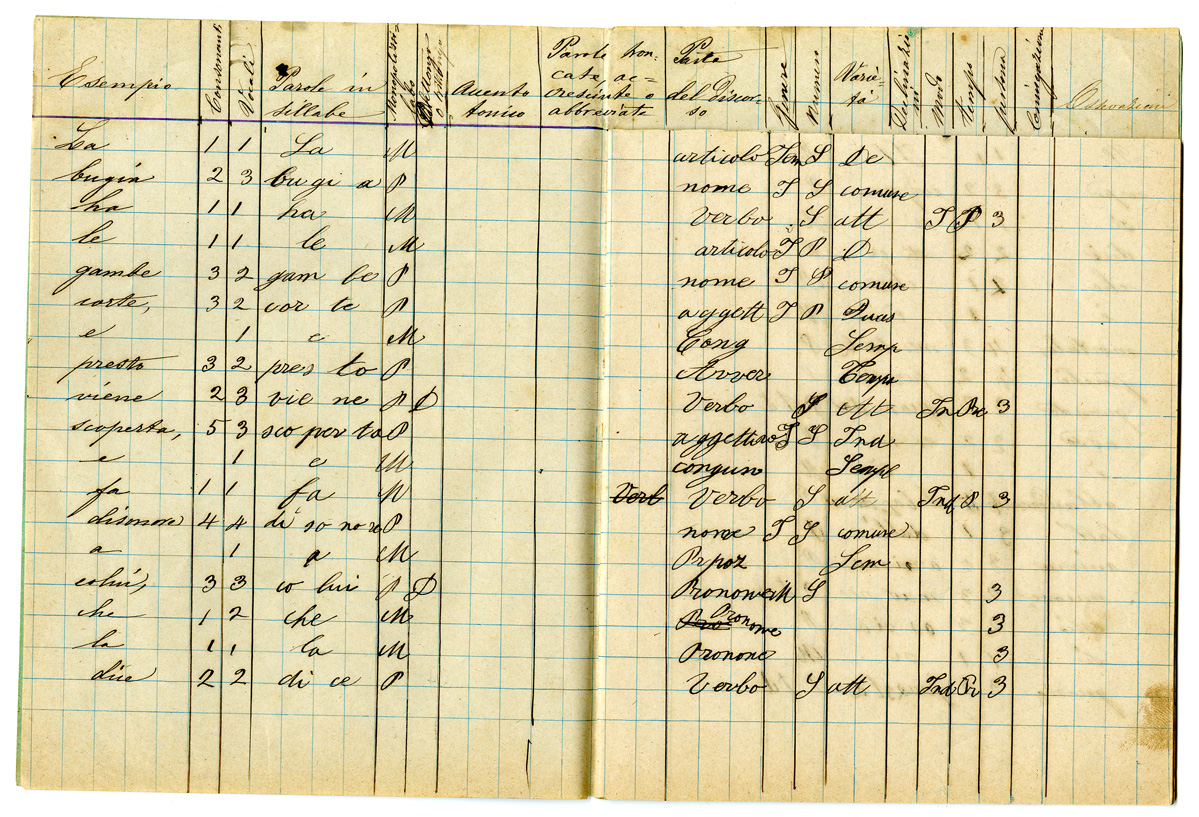 Esempio Consonanti Vocali Parole in sillabe Accento tonico Parole tron- cate ac- cresciute o abbreviate Parte del Discor- so Genere Numero Varie- tà Modo Tempo persona Coniugazione Osservazioni
La 1 1 La M articolo Fem S De
bugia 2 3 bu gi a P nome F S comune
ha 1 1 ha M Verbo S att I P 3
le 1 1 le M articolo F P D
gambe 3 2 gam be P nome F P comune
corte, 3 2 cor te P aggett F P Quas
e 1 e M Cong Semp
presto 3 2 pres to P Avver Temp
viene 2 3 vie ne P D Verbo S att In Pre 3
scoperta, 5 3 sco per ta P aggettivo F S Ind
e 1 e M congiun Sempl
fa 1 1 fa M Verb Verbo S att Ind P 3
disonore 4 4 di so no re P nome F S comune
a 1 a M Prpoz Sem
colui, 3 3 co lui P D Pronome M S 3
che 1 2 che M Pro Pronome 3
la 1 1 la M Pronone 3
dice 2 2 di ce P Verbo S att Ind Pr 3